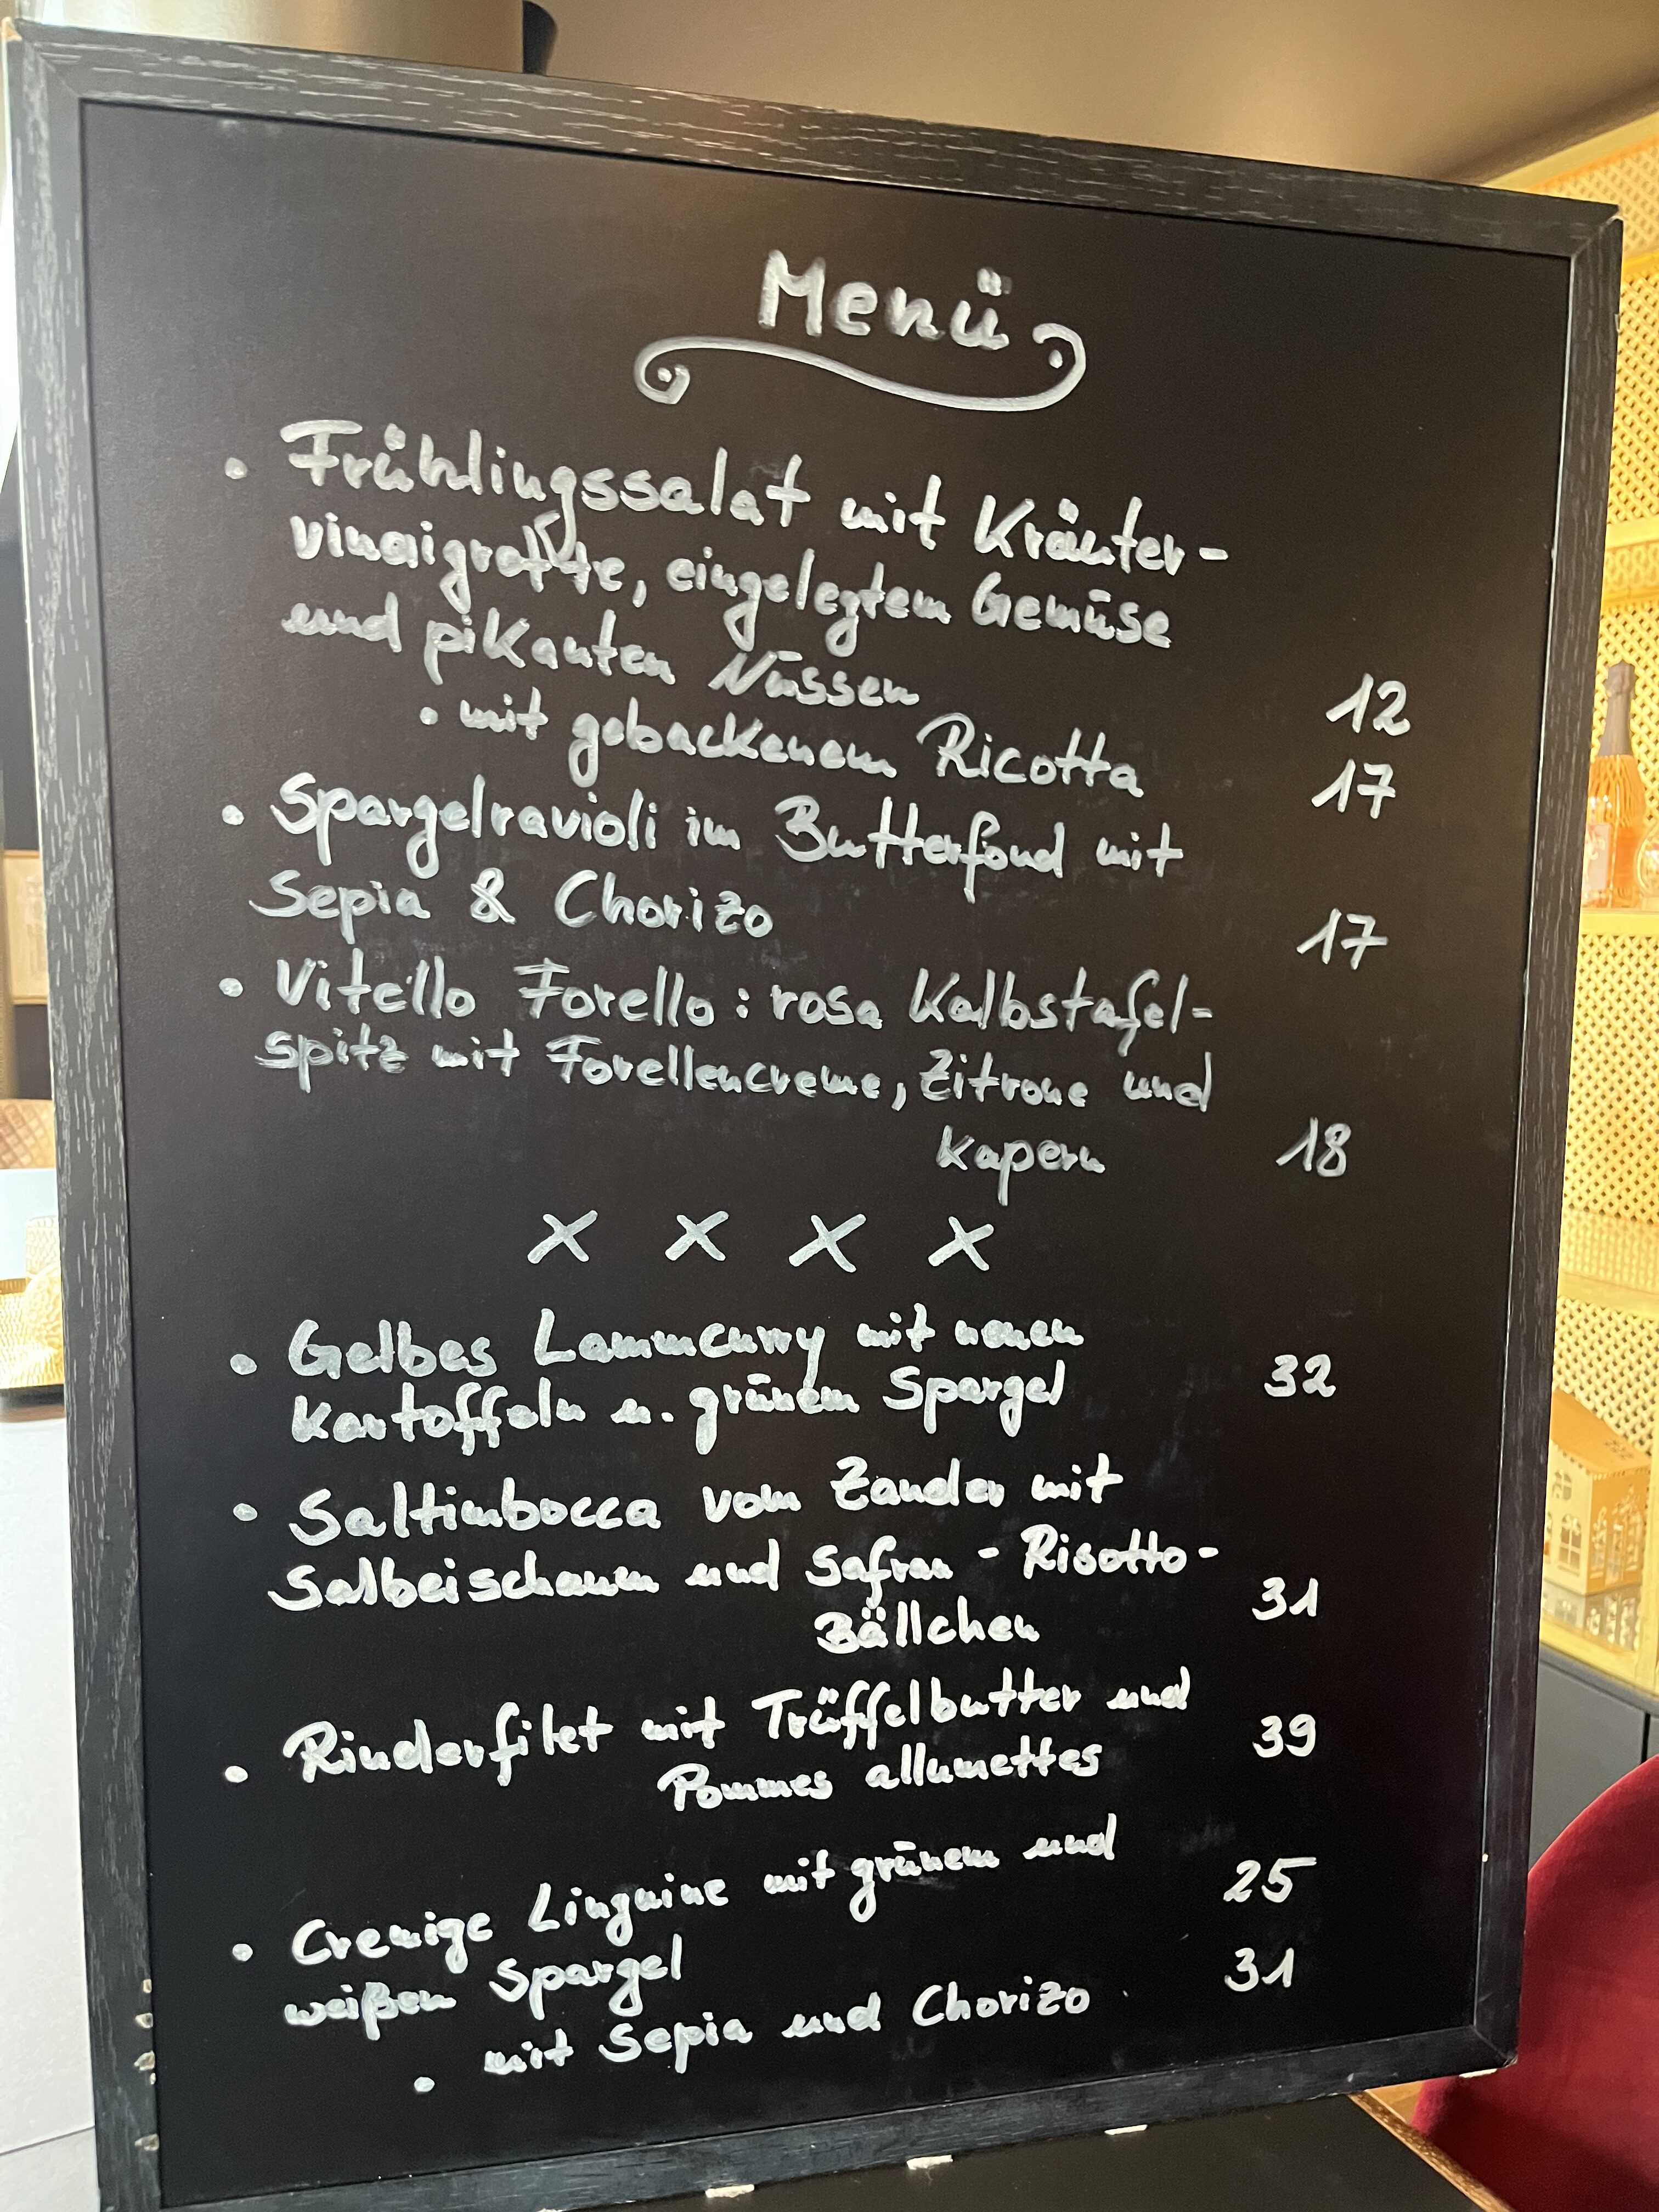 Menü
• Frühlingssalat mit Kräuter-
vinaigrette, eingelegtem Gemüse
und pikanten Nüssen 12
• mit gebackenem Ricotta 17
• Spargelravioli im Butterfond mit
Sepia & Chorizo 17
• Vitello Forello: rosa Kalbstafel-
spitz mit Forellencreme, Zitrone und
Kapern 18
x x x x
• Gelbes Lammcurry mit neuen
Kartoffeln u. grünem Spargel 32
• Saltimbocca vom Zander mit
Salbeischaum und Safran-Risotto-
Bällchen 31
• Rinderfilet mit Trüffelbutter und
Pommes allumettes 39
• Cremige Linguine mit grünem und
weißem Spargel 25
• mit Sepia und Chorizo 31